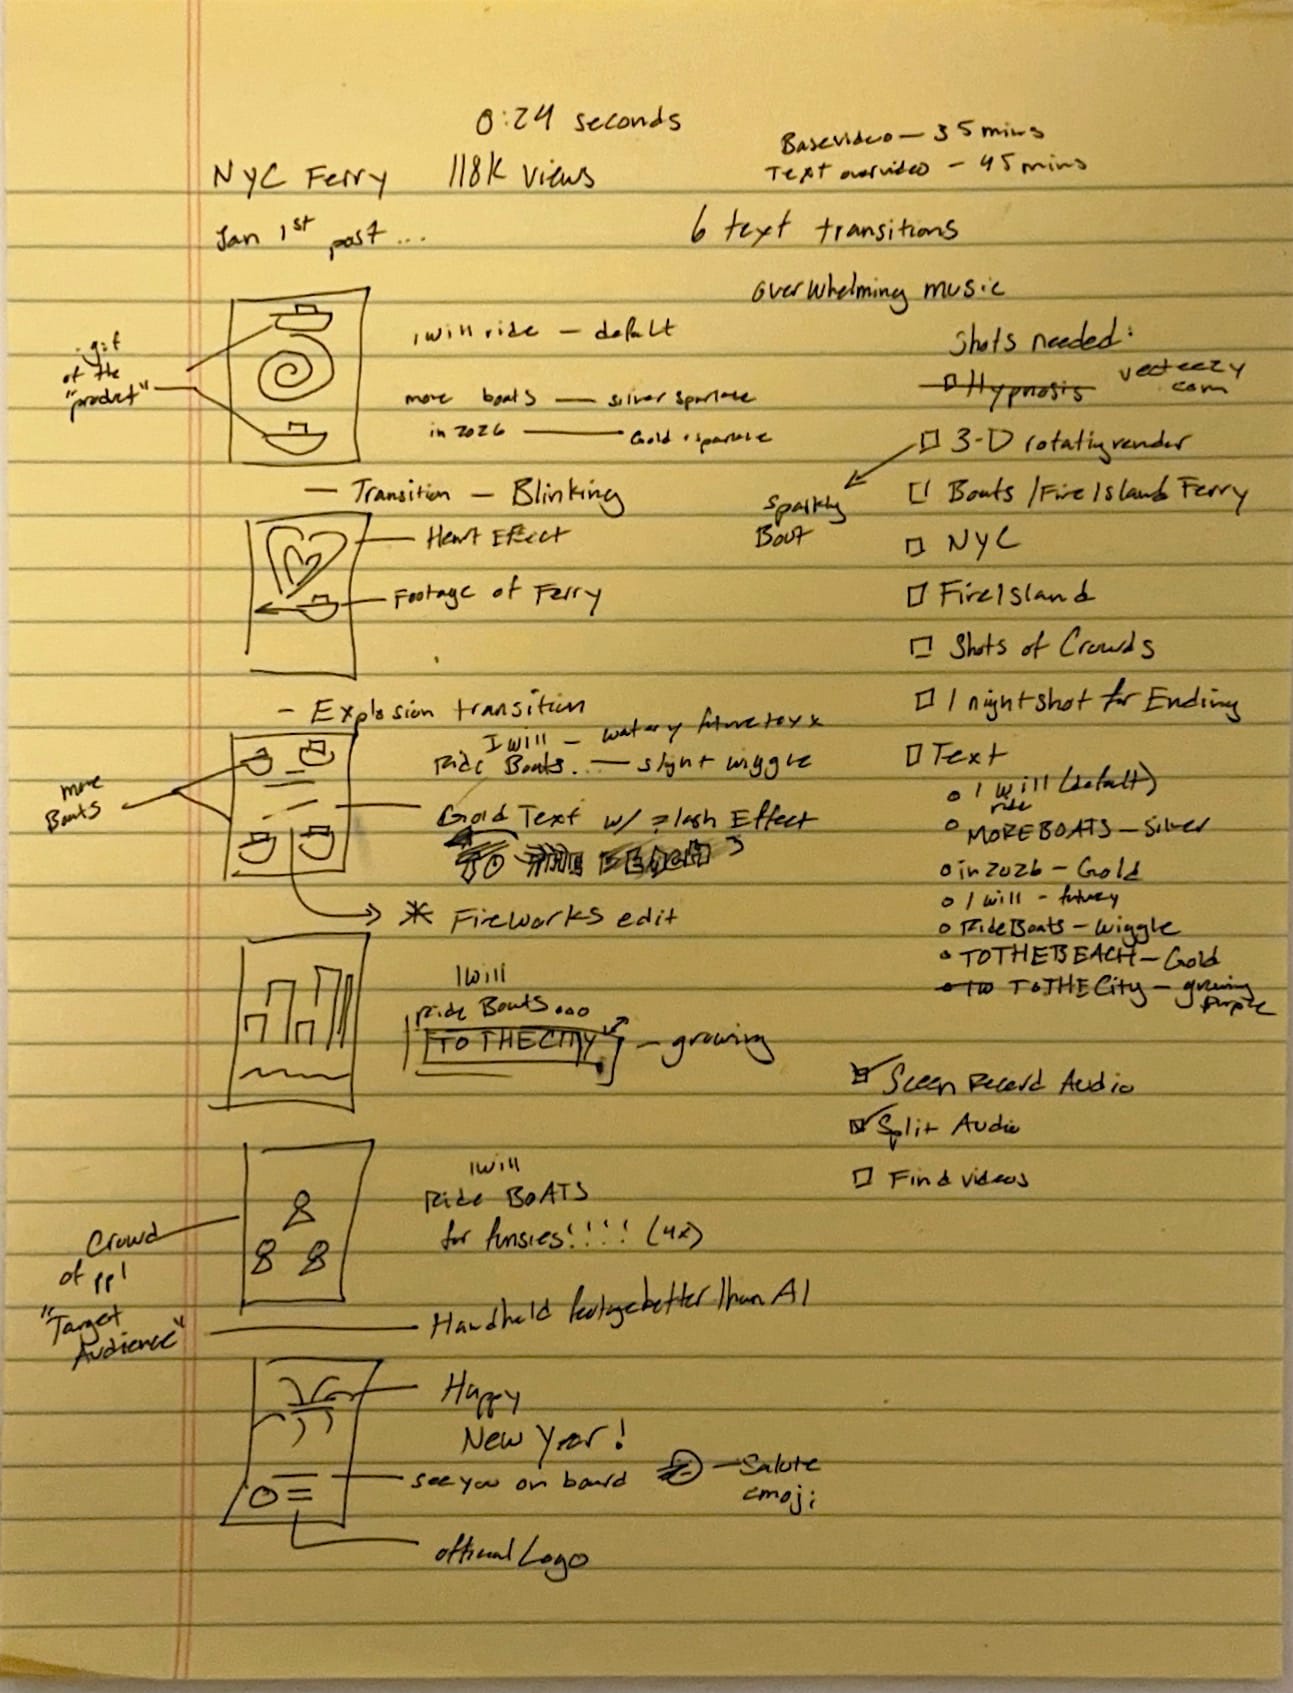 0:24 seconds
NYC Ferry 118K views
Jan 1st post...
Basevideo — 35 mins
Text overvideo — 45 mins
6 text transitions
overwhelming music
.gif
of the
"product"
I will ride — defalt
more boats — silver sparkle
in 2026 — Gold + sparkle
— Transition — Blinking
Heart Effect
Footage of Ferry
— Explosion transition
I will — watery future
Ride Boats. — slight wiggle
more
Boats
Gold Text w/ Flash Effect
* Fireworks edit
I will
Ride Boats...
TO THE CITY — growing
I will
Ride BOATS
for funsies!!!! (4x)
Crowd
of ppl
"Target
Audience"
Handheld footage better than AI
Happy
New Year!
see you on board — Salute
emoji
official Logo
Shots needed:
Hypnosis vecteezy
com
3-D rotating render
Sparkly
Boat
Boats / Fire Island Ferry
NYC
Fire Island
Shots of Crowds
1 night shot for Ending
Text
I will (default)
ride
MORE BOATS — Silver
in 2026 — Gold
I will — futury
Ride Boats — wiggle
TO THE BEACH — Gold
TO THE City — growing
purple
Sceen Record Audio
Split Audio
Find videos